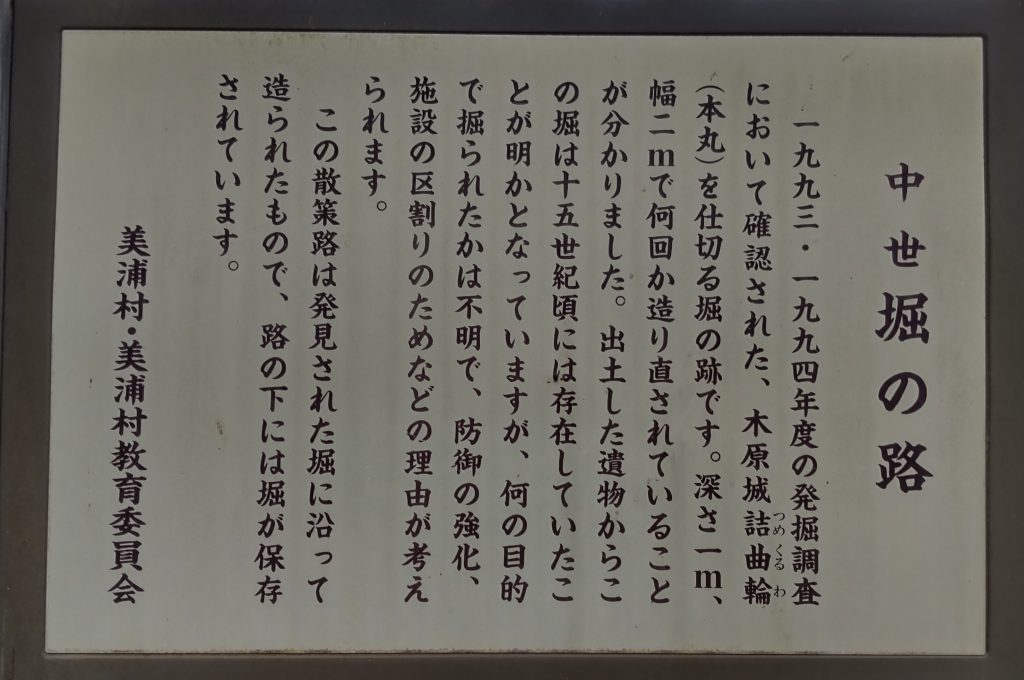 中世堀の路
一九九三・一九九四年度の発掘調査
において確認された、木原城詰曲輪
つめくるわ
（本丸）を仕切る堀の跡です。深さ一ｍ、
幅二ｍで何回か造り直されていること
が分かりました。出土した遺物からこ
の堀は十五世紀頃には存在していたこ
とが明かとなっていますが、何の目的
で掘られたかは不明で、防御の強化、
施設の区割りのためなどの理由が考え
られます。
この散策路は発見された堀に沿って
造られたもので、路の下には堀が保存
されています。
美浦村・美浦村教育委員会